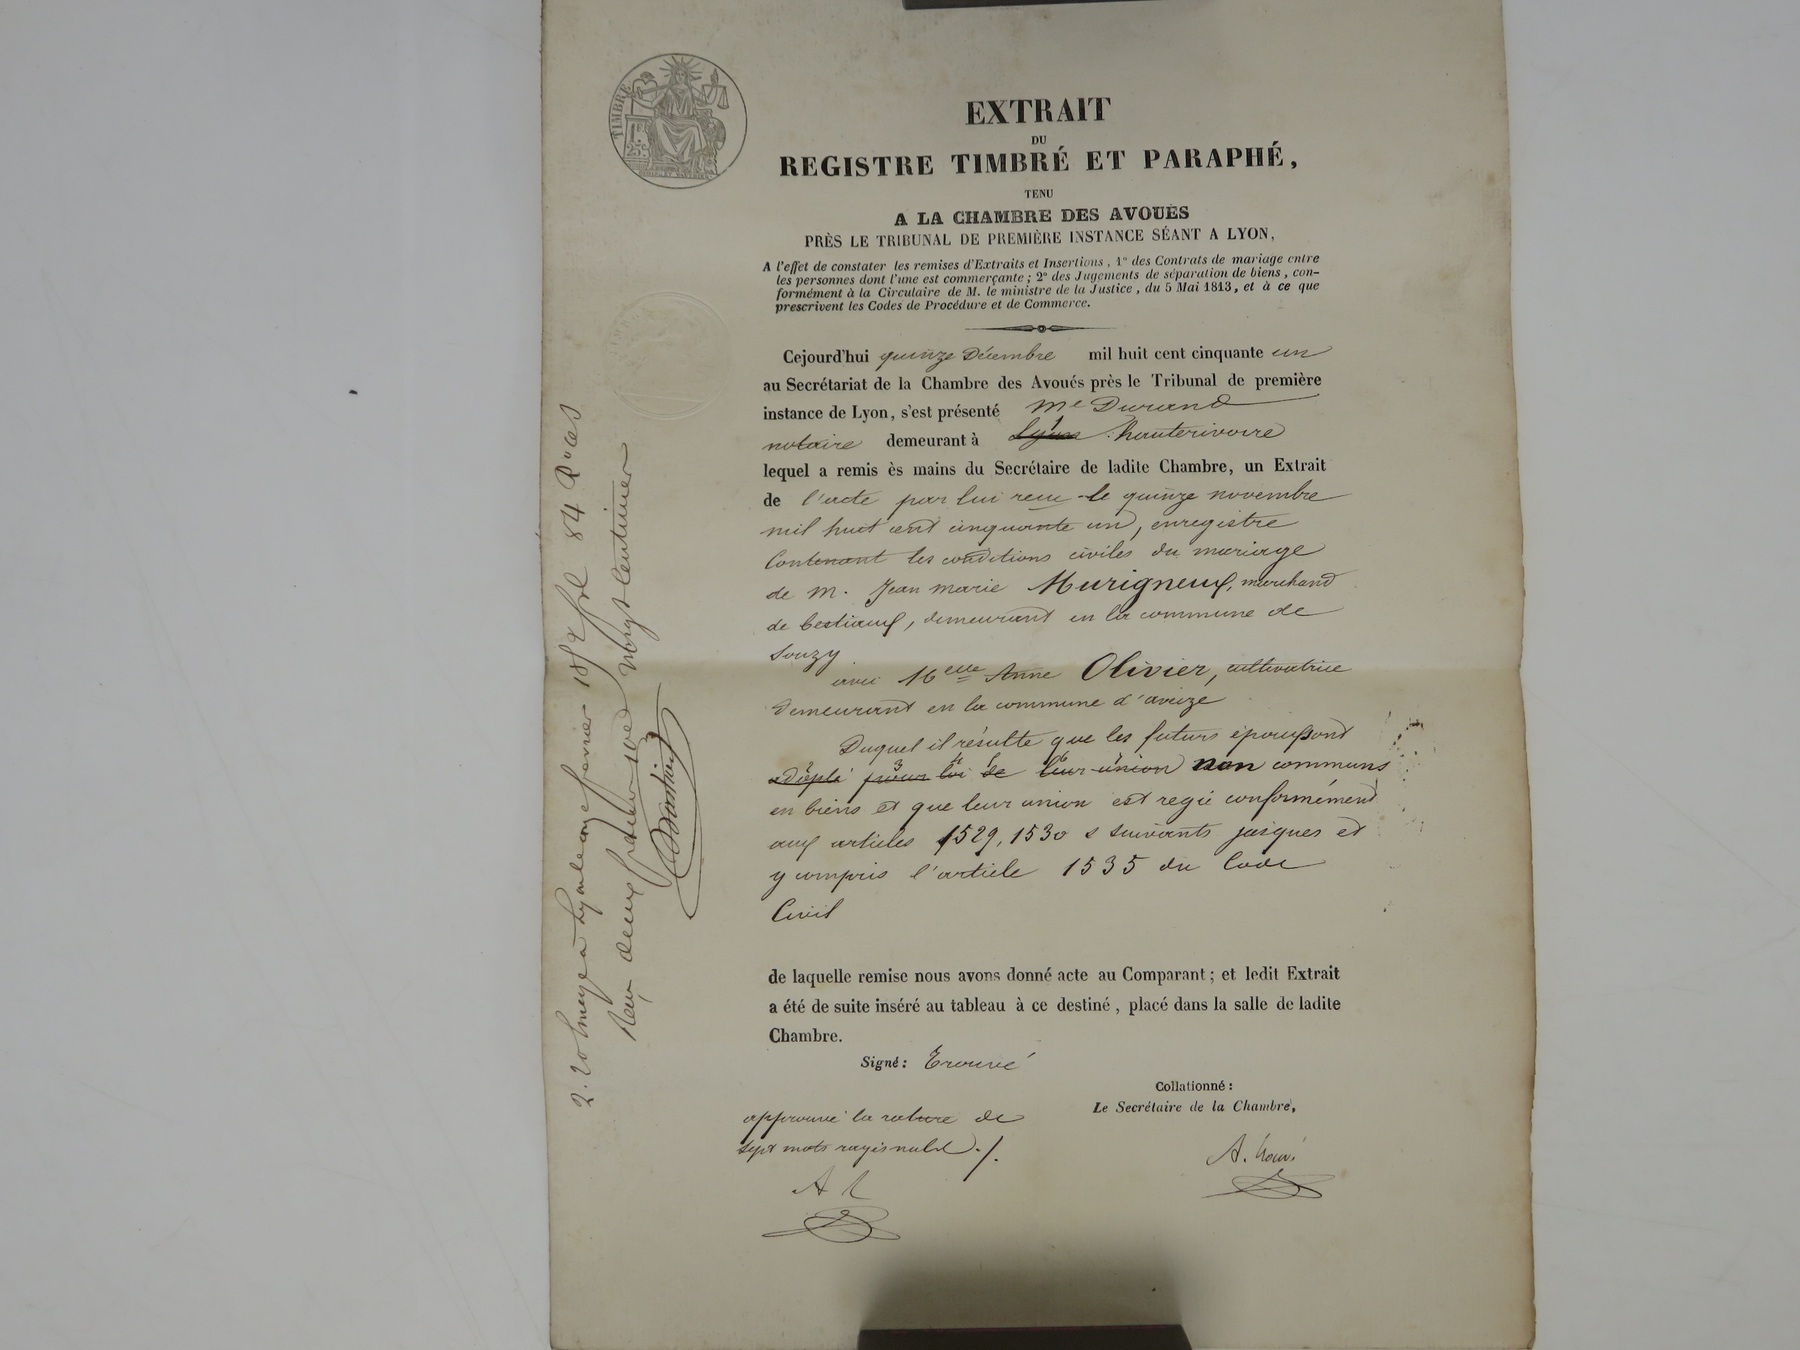 TIMBRE
1 F.
25 C.
EXTRAIT
DU
REGISTRE TIMBRÉ ET PARAPHÉ,
TENU
A LA CHAMBRE DES AVOUÉS
PRÈS LE TRIBUNAL DE PREMIÈRE INSTANCE SÉANT A LYON,
A l'effet de constater les remises d'Extraits et Insertions, 1° des Contrats de mariage entre
les personnes dont l'une est commerçante ; 2° des Jugements de séparation de biens, con-
formément à la Circulaire de M. le ministre de la Justice, du 5 Mai 1813, et à ce que
prescrivent les Codes de Procédure et de Commerce.
Cejourd'hui quinze Décembre mil huit cent cinquante un
au Secrétariat de la Chambre des Avoués près le Tribunal de première
instance de Lyon, s'est présenté Me Durand
notaire demeurant à Lyon hauterivoire
lequel a remis ès mains du Secrétaire de ladite Chambre, un Extrait
de l'acte par lui reçu le quinze novembre
mil huit cent cinquante un, enregistré
Contenant les conditions civiles du mariage
de M. Jean Marie Murigneux, marchand
de bestiaux, demeurant en la commune de
Souzy
avec Melle Anne Olivier, cultivatrice
demeurant en la commune d'aveize
Duquel il résulte que les futurs époux sont
adopté pour loi de leur union non communs
en biens et que leur union est régie conformément
aux articles 1529, 1530 & suivants jusques et
y compris l'article 1535 du Code
Civil
de laquelle remise nous avons donné acte au Comparant ; et ledit Extrait
a été de suite inséré au tableau à ce destiné, placé dans la salle de ladite
Chambre.
Signé : Trouvé
Collationné :
Le Secrétaire de la Chambre,
approuvé la rature de
sept mots rayés nuls ./.
A
A.
à Lyon le onze janvier 1852 fol 84
Reçu deux francs vingt centimes